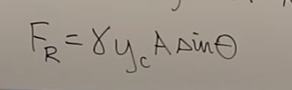 F_R = γ y_c A sin θ